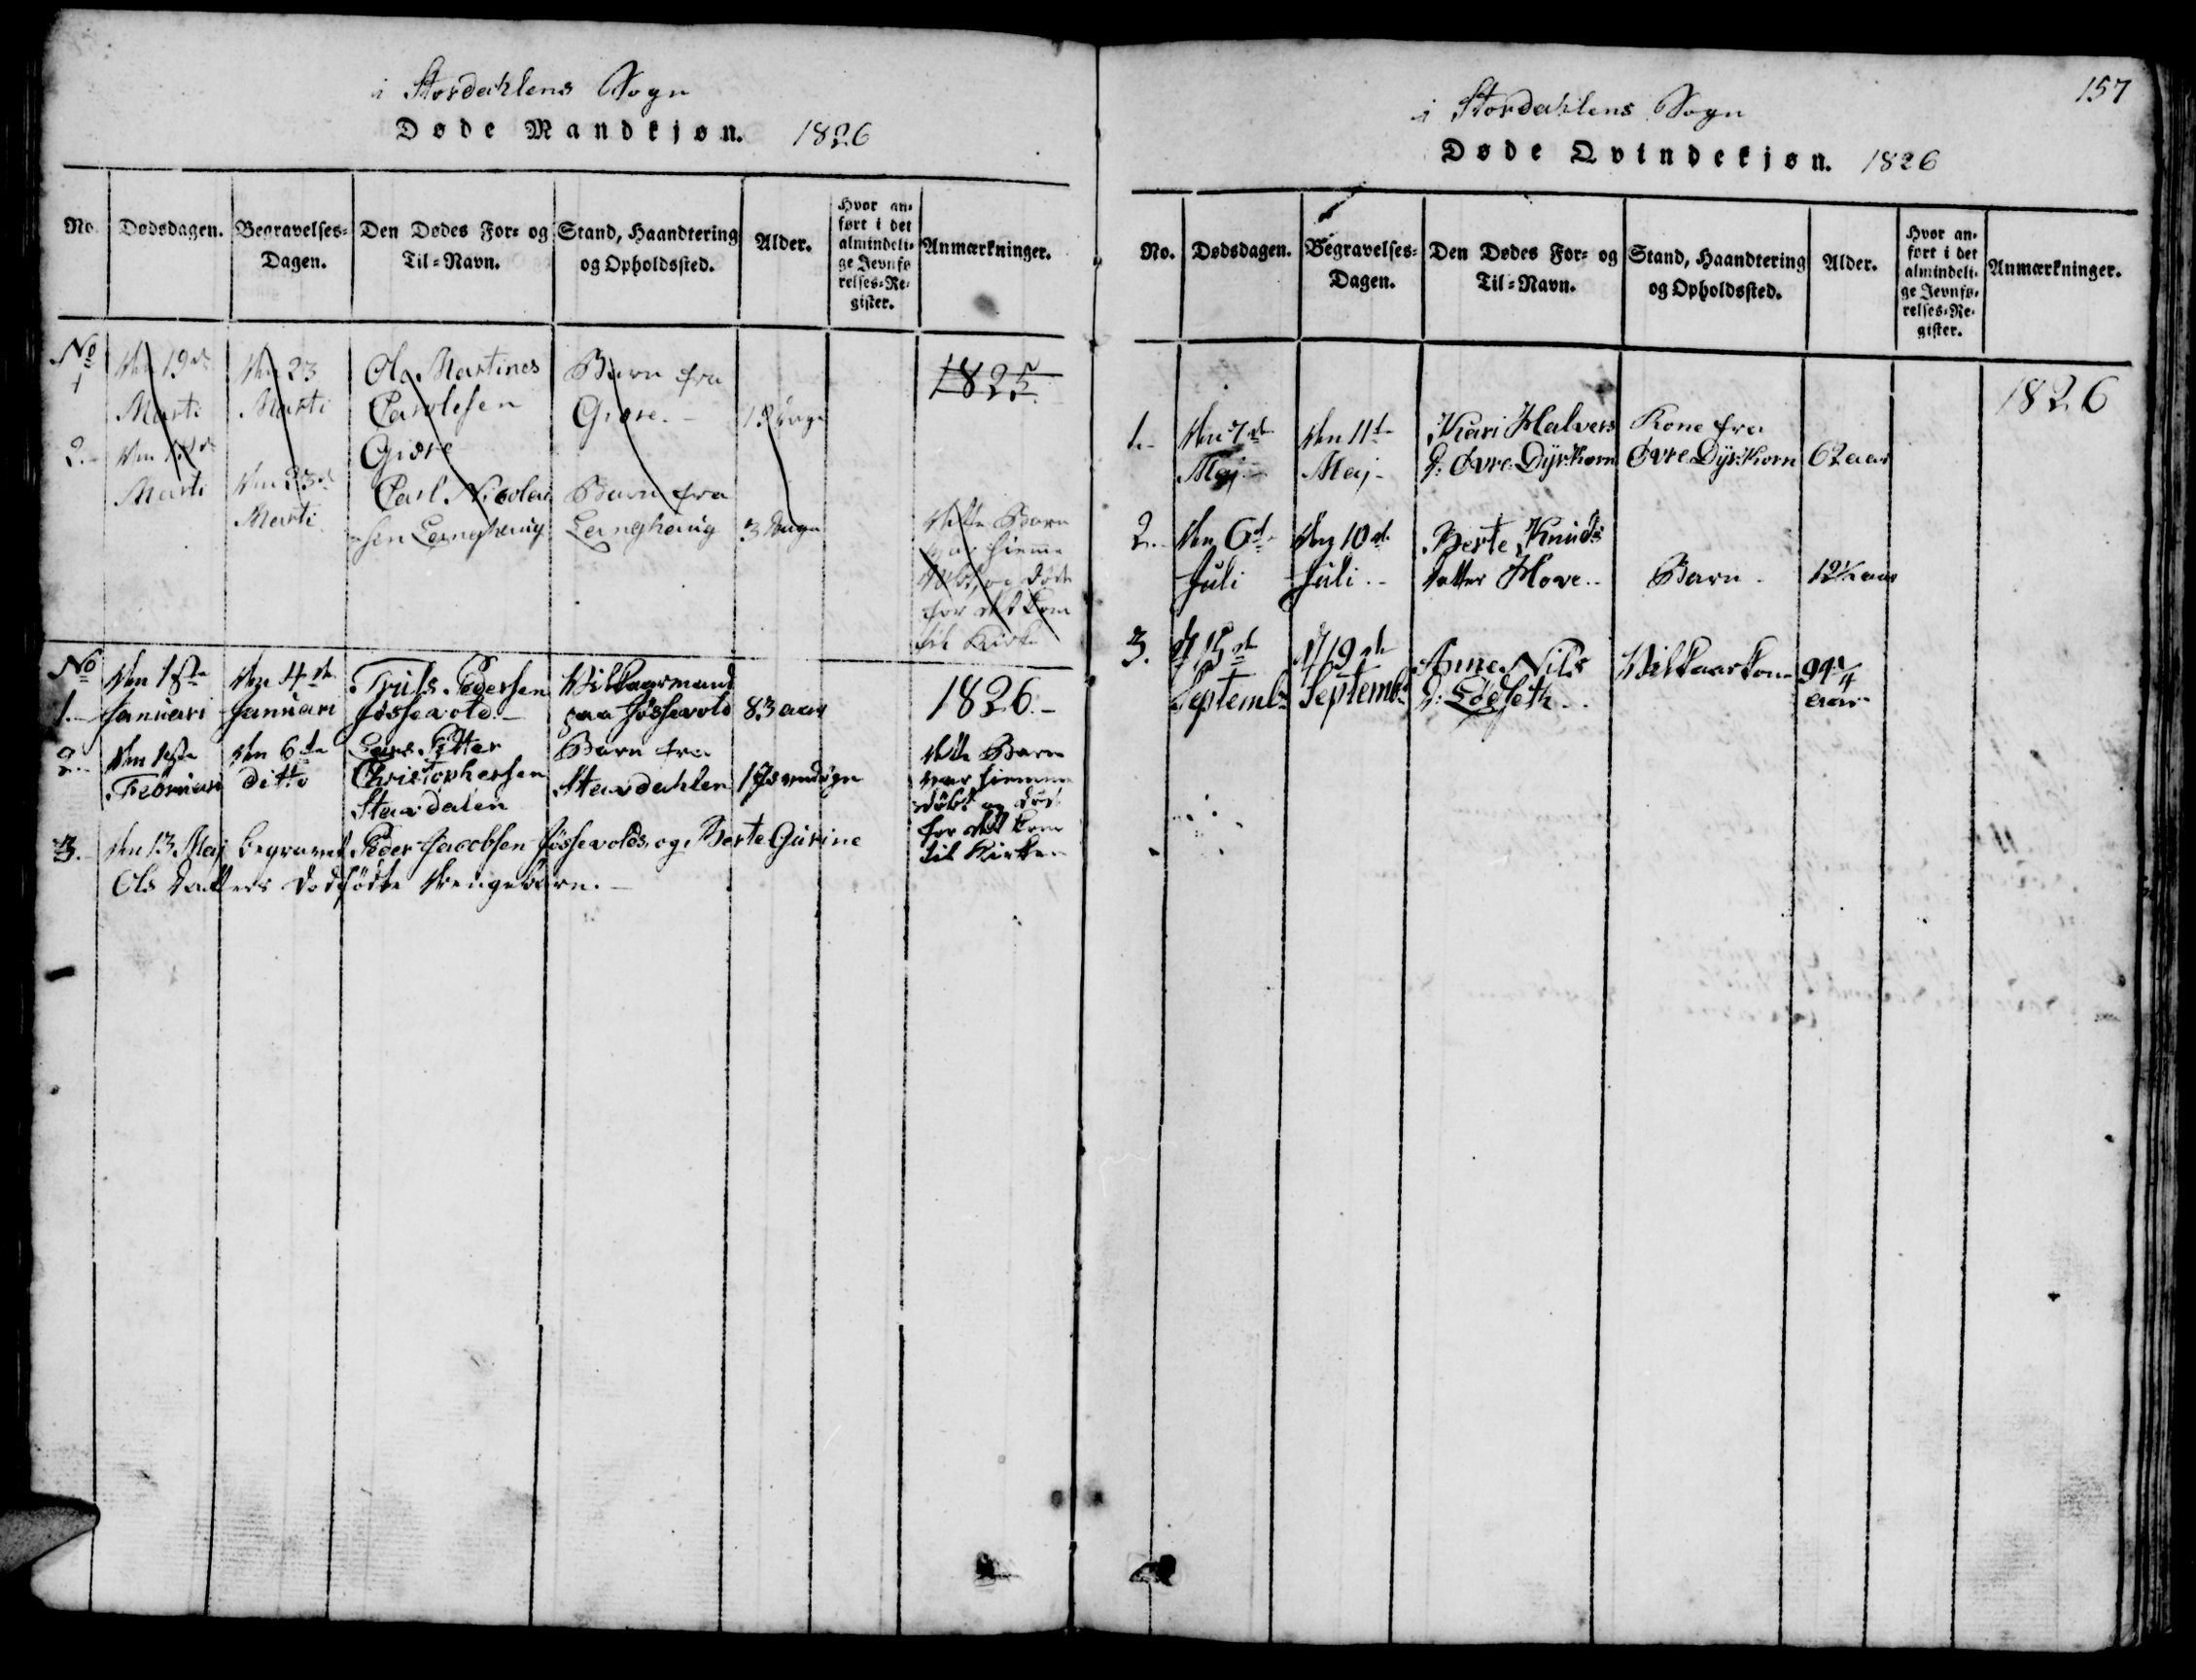 i Stordahlens Sogn
Døde Mandkjøn. 1826
No. Dødsdagen. Begravelses-Dagen. Den Dødes For- og Til-Navn. Stand, Haandtering og Opholdssted. Alder. Hvor anført i det almindelige Jevnførelses-Register. Anmærkninger.
No 1 den 19de Marti den 23 Marti Ola Martines Carolesen Giøre Barn fra Giøre.- Dage 1825
2.- den Marti den 23de Marti Carl Nicolai-sen Lernghaug Barn fra Lernghaug 3 Dage
dette Barn
var hiemme
døbt, og døde
for det kom
til Kirke
No 1.- den 1ste Januari den 4de Januari Truls Pedersen Jøssevold.- Vilkaarmand paa Jøssevold 83 aar 1826.-
2.- den 1ste Februari den 6te ditto Lars Petter Christophersen Stavdalen Barn fra Stavdahlen
dette Barn
var hiemme
døbt og død
for det kom
til Kirken
3.- den 13 Maj begravet Peder Jacobsen Jøssevolds, og Berte Gurine
Ols Datters dødfødte Drengebarn.-
157
i Stordahlens Sogn
Døde Qvindekjøn. 1826
No. Dødsdagen. Begravelses-Dagen. Den Dødes For- og Til-Navn. Stand, Haandtering og Opholdssted. Alder. Hvor anført i det almindelige Jevnførelses-Register. Anmærkninger.
1826
1.- den 7de Maj- den 11te Maj- Kari Halvers D: Øvre Dyrkorn Kone fra Øvre Dyrkorn 62 aar
2.- den 6te Juli den 10de Juli.- Berte Knuds datter Hove.- Barn- 12½ aar
3. d 15de Septembr d 19de Septembr Anne Nils D: Lødseth.- Vilkaarkone 94¼ aar